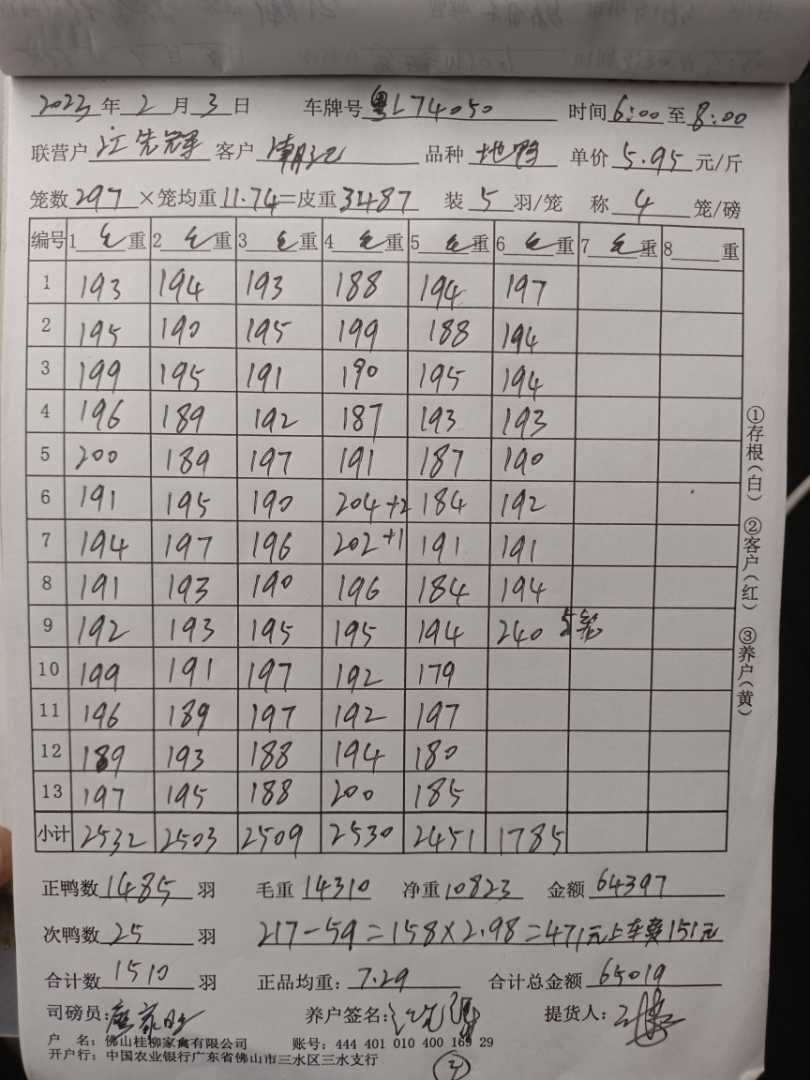 2023年2月3日 车牌号 粤L74050 时间6:00至8:00
联营户 江先冠 客户 潮记 品种 地鸭 单价 5.95 元/斤
笼数297×笼均重11.74=皮重3487 装 5 羽/笼 称 4 笼/磅
编号 1 毛重 2 毛重 3 毛重 4 毛重 5 毛重 6 毛重 7 毛重 8 重
1 193 194 193 188 194 197
2 195 190 195 199 188 194
3 199 195 191 190 195 194
4 196 189 192 187 193 193
5 200 189 197 191 187 190
6 191 195 190 204+2 184 192
7 194 197 196 202+1 191 191
8 191 193 190 196 184 194
9 192 193 195 195 194 240 5笼
10 199 191 197 192 179
11 196 189 197 192 197
12 189 193 188 194 180
13 197 195 188 200 185
小计 2532 2503 2509 2530 2451 1785
正鸭数1485羽 毛重 14310 净重10823 金额 64397
次鸭数25羽 217-59=158×2.98=471元上车费151元
合计数1510羽 正品均重:7.29 合计总金额 65019
司磅员: 养户签名: 提货人:
户 名: 佛山桂柳家禽有限公司 账号: 444 401 010 400 169 29
开户行: 中国农业银行广东省佛山市三水区三水支行
①存根(白) ②客户(红) ③养户(黄)